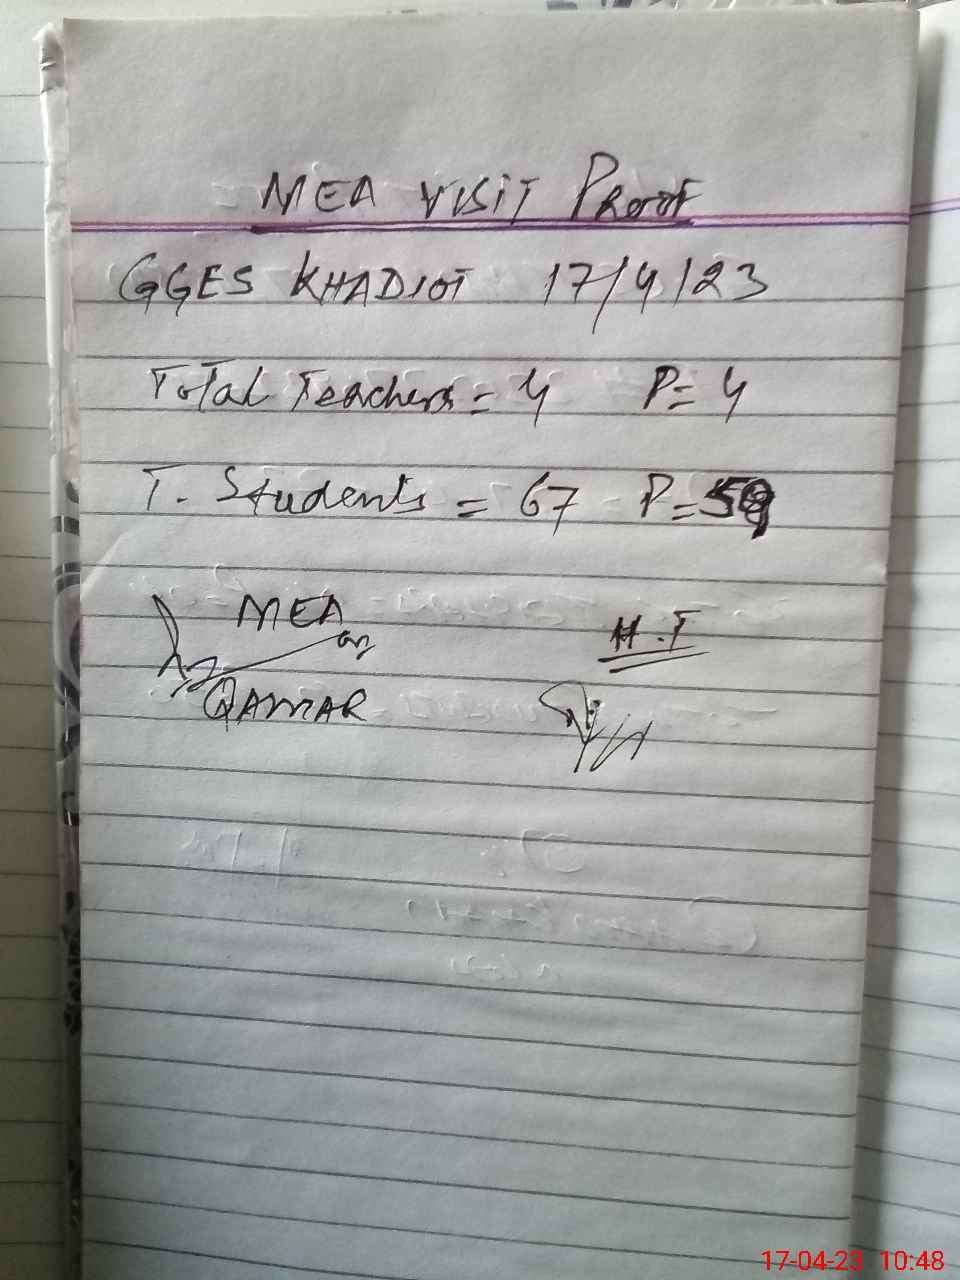 MEA VISIT PROOF
GGES KHADIOT 17/4/23
Total Teachers = 4 P = 4
T. Students = 67 P = 59
MEA
QAMAR
H.T
17-04-23 10:48